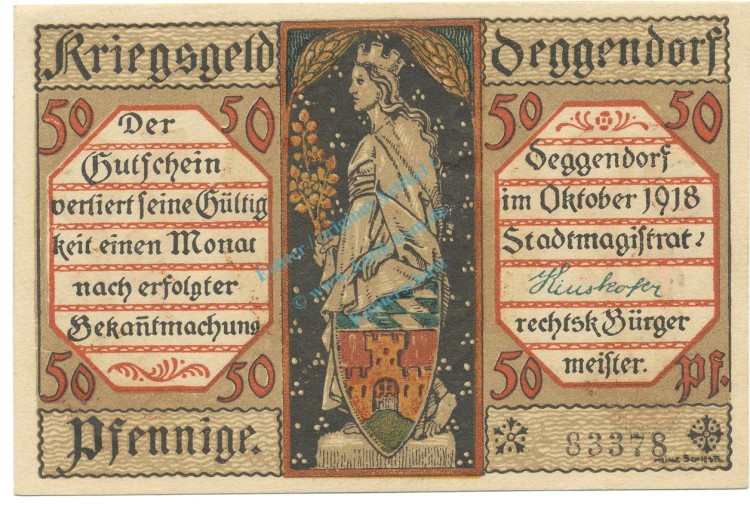 Kriegsgeld Deggendorf
50 50
Der
Gutschein
verliert seine Gültig
keit einen Monat
nach erfolgter
Bekañtmachung
50 50
Pfennige.
50 50
Deggendorf
im Oktober 1918
Stadtmagistrat:
rechtsk Bürger
meister.
50 Pf.
83378